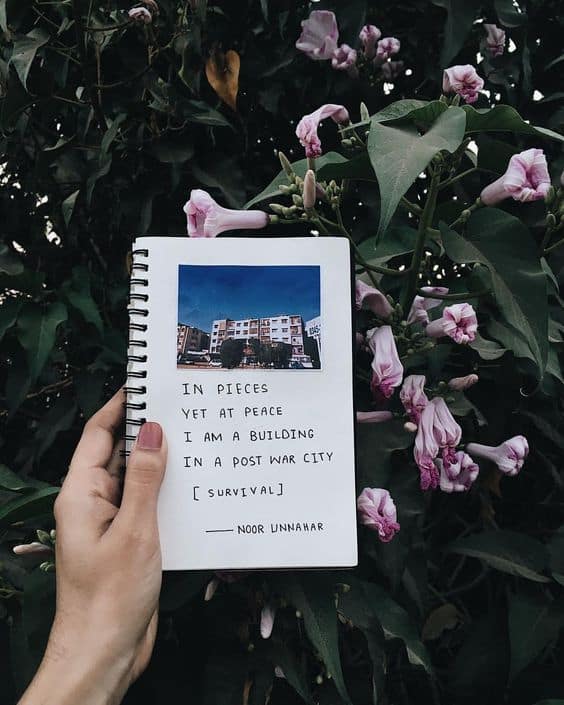 IN PIECES
YET AT PEACE
I AM A BUILDING
IN A POST WAR CITY
[SURVIVAL]
— NOOR UNNAHAR